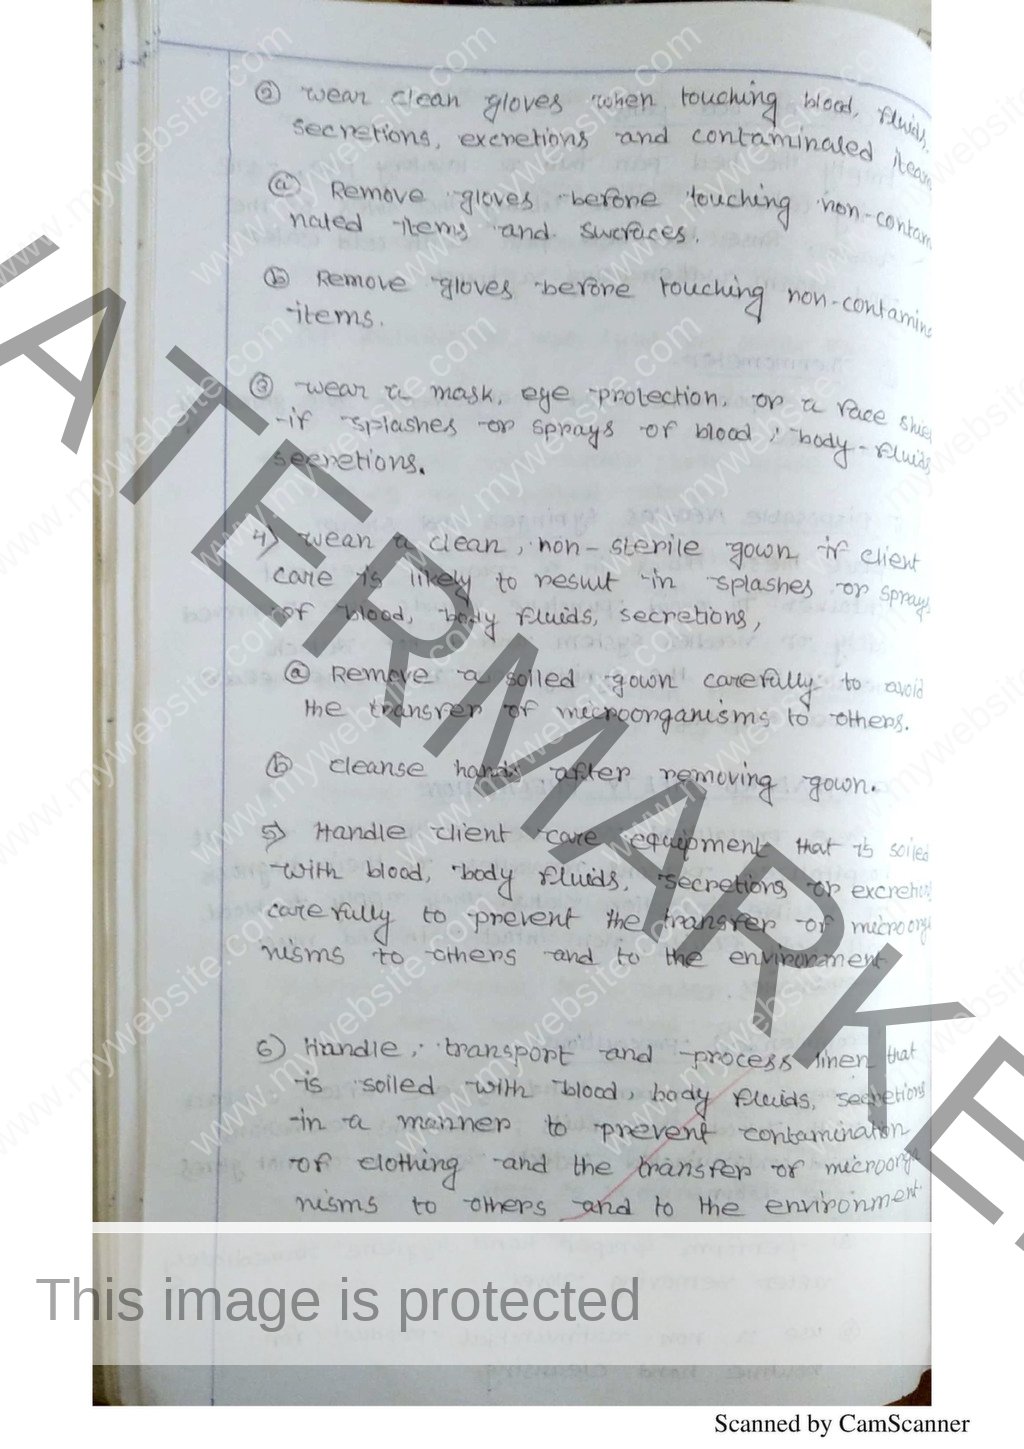 ② wear clean gloves when touching blood, fluids,
secretions, excretions and contaminated items
ⓐ Remove gloves before touching non-contam
nated items and surfaces.
ⓑ Remove gloves before touching non-contamina
items.
③ wear a mask, eye protection, or a face shiel
if splashes or sprays of blood, body-fluids
secretions.
4) wear a clean, non-sterile gown if client
care is likely to result in splashes or sprays
of blood, body fluids, secretions,
ⓐ Remove a soiled gown carefully to avoid
the transfer of microorganisms to others.
ⓑ cleanse hands after removing gown.
5) Handle client care equipment that is soiled
with blood, body fluids, secretions or excretion
carefully to prevent the transfer of microorga
nisms to others and to the environment
6) Handle, transport and process linen that
is soiled with blood, body fluids, secretions
in a manner to prevent contamination
of clothing and the transfer of microorga
nisms to others and to the environment.
WATERMARKE
www.mywebsite.com
This image is protected
Scanned by CamScanner